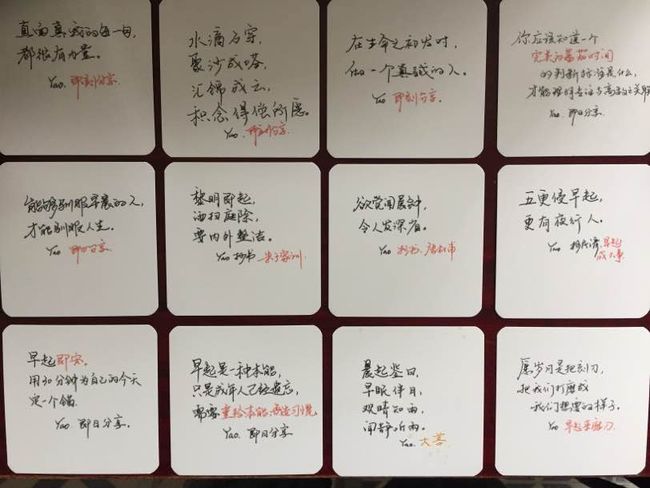 直面真我的每一日,
都很有力量。
Yao. 即刻分享.
水滴石穿,
聚沙成塔,
汇锦成云,
积念得偿所愿。
Yao 即刻分享.
在生命之初发时,
做一个真诚的人。
Yao 即刻分享.
你应该知道一个
完美的番茄时间
的判断标准是什么,
才能理解专注与高效的关联
Yao. 即日分享.
能够驯服早晨的人,
才能驯服人生。
Yao 即日分享
黎明即起,
洒扫庭除,
要内外整洁。
Yao 抄书 朱子家训
欲觉闻晨钟,
令人发深省。
Yao 抄书. 唐杜甫
五更侵早起,
更有夜行人。
Yao 抄 早起
成大事
早起即安,
用30分钟为自己的今天
定一个锚.
Yao 即日分享.
早起是一种本能,
只是成年人已经遗忘,
重拾本能
Yao. 即日分享
晨起鉴日,
早眠伴月,
欢晴知雨,
闲静听雨。
Yao.
愿岁月是把刻刀,
把我们打磨成
我们想要的样子.
Yao 早起